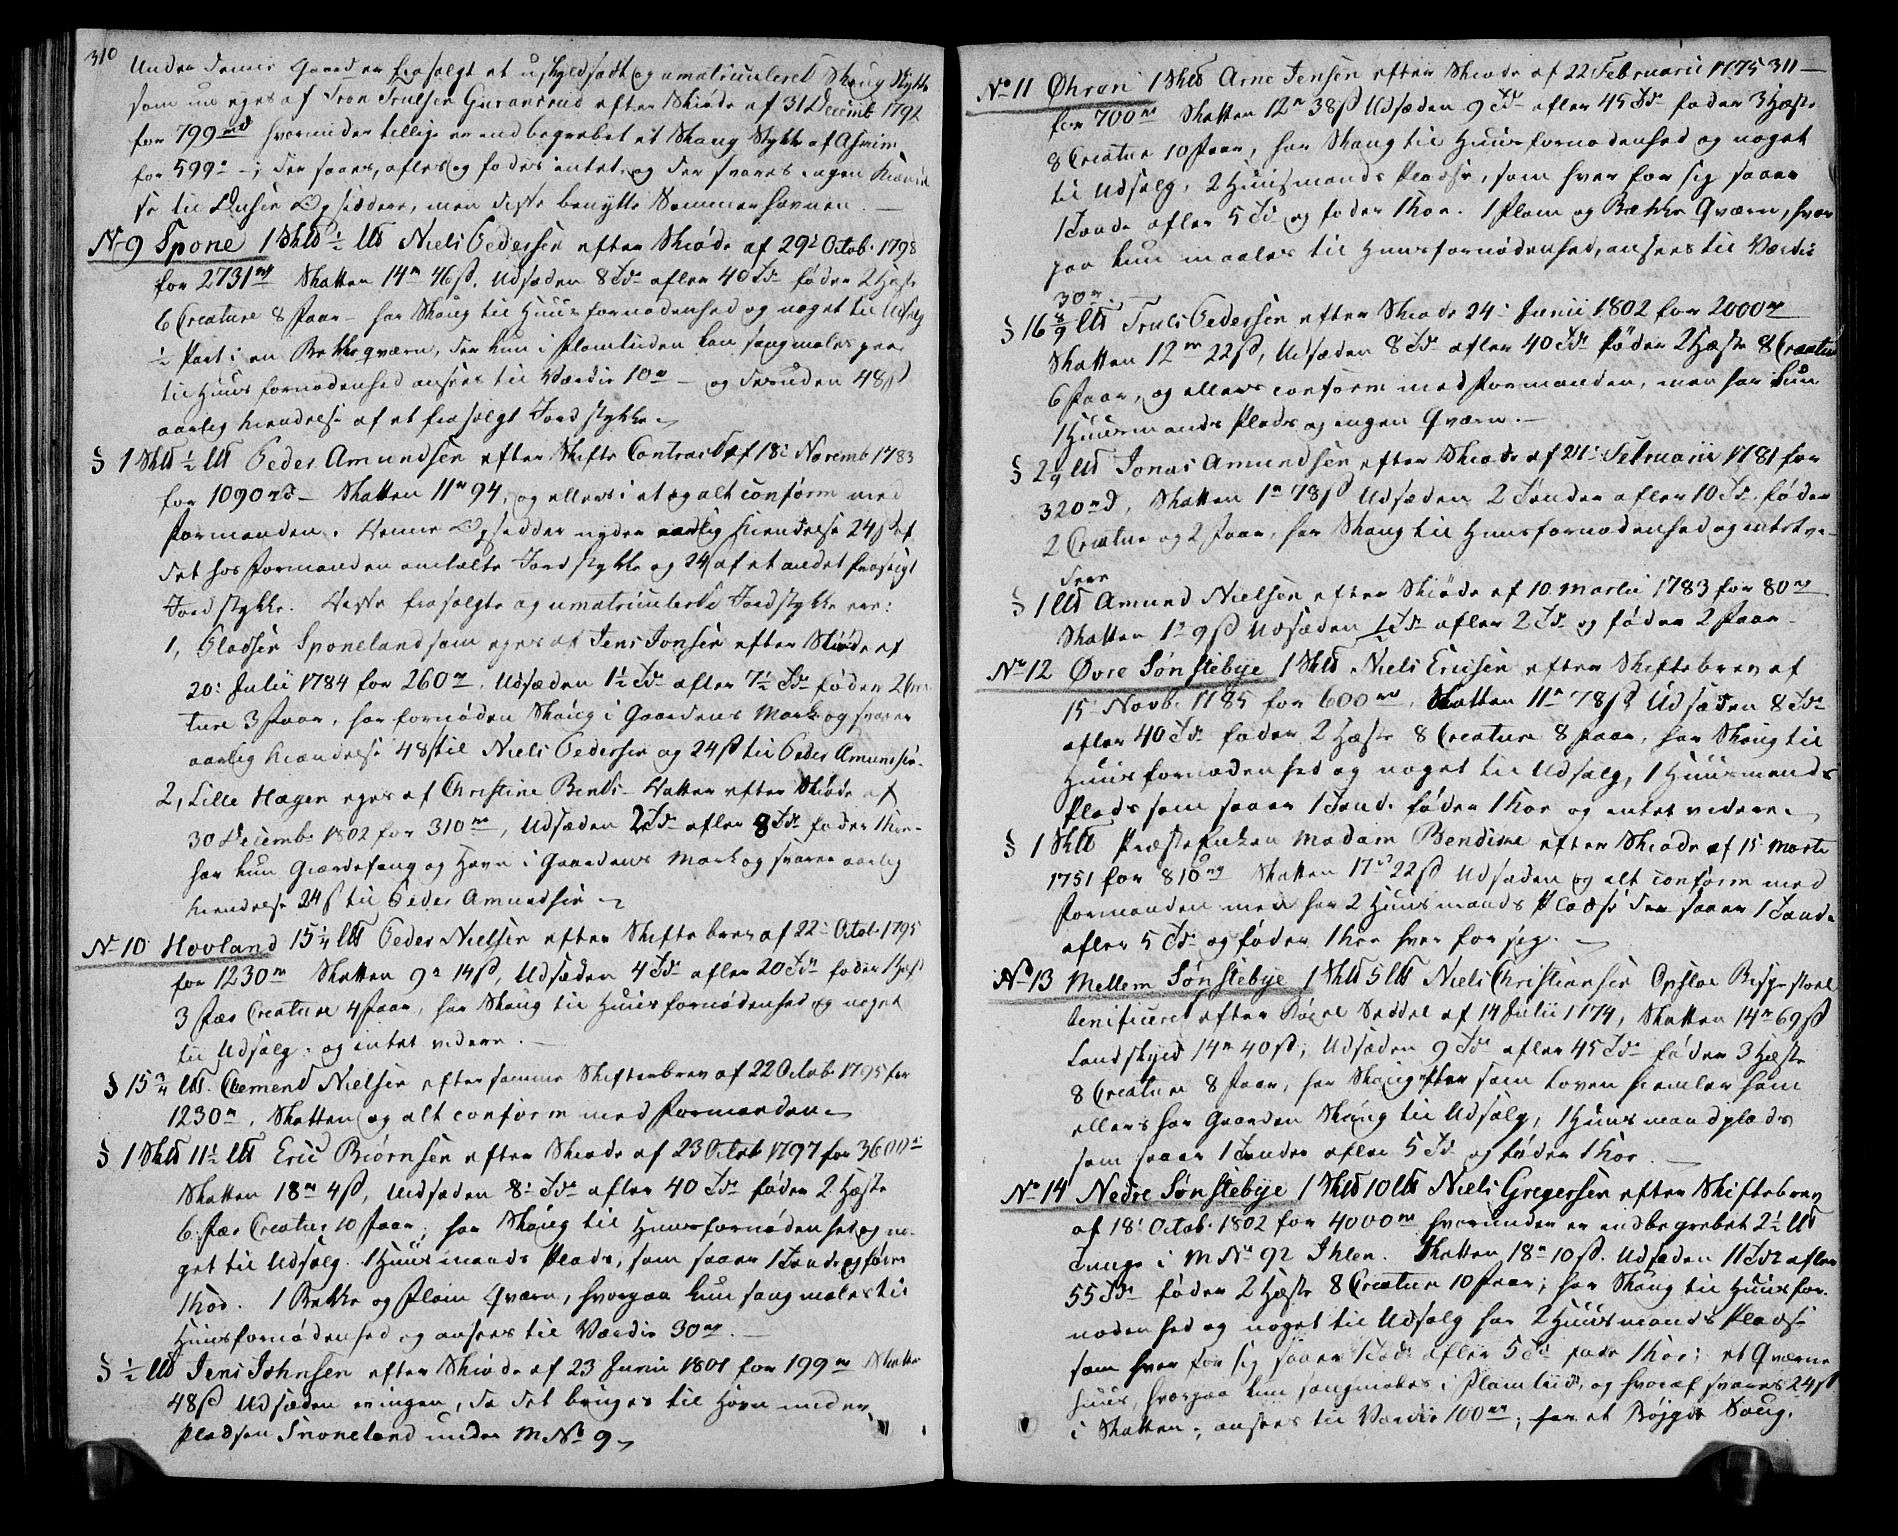 310
Under denne Gaard er frasolgt et uskyldsadt og umatriculeret Skaug Stykke
som nu eges af Tron Trulsen Guransrud efter Skiøde af 31 Decemb 1792
for 799 rd hvorunder tillige er indbegrebet et Skaug Stykke af
for 599 – ; der saaes, afles og fødes intet, og der svares ingen Kiend
se til Opsiddere, men disse benytte Sommerhavnen. —
No 9 Spone 1 Skld ½ Lld Niels Pedersen efter Skiøde af 29 Octob. 1798
for 2731 rd Skatten 14 rd 46 ß, Udsæden 8 Tdr afler 40 Tdr føder 2 Heste
6 Creature 8 Faar – har Skaug til Huusfornødenhed og noget til Udsalg
½ Part i en Bekke qværn, der kun i Flomtiden kan males paa
til Huusfornødenhed ansees til Værdie 10 rd – og desuden 48 ß
aarlig Kiendelse af et frasolgt Jordstykke.
§ 1 Skld ½ Lld Peder Amundsen efter Skifte Contract af 18 Novemb 1783
for 1090 rd – Skatten 11 rd 94, og ellers i et og alt conform med
Formanden. Denne Opsidder nyder aarlig Kiendelse 24 ß af
det hos Formanden omtalte Jordstykke og 24 af et andet frasolgt
Jordstykke. Disse frasolgte og umatriculerede Jordstykker ere:
1, Pladsen Sponeland som eges af Jens Jonsen efter Skiøde af
20 Julii 1784 for 260 rd. Udsæden 1½ Tdr afler 7½ Tdr føder 2 Crea
ture 3 Faar, har fornøden Skaug i Gaardens Mark og svarer
aarlig Kiendelse 48 ß til Niels Pedersen og 24 ß til Peder Amundsen.
2, Lille Hagen eges af Christine Bends Datter efter Skiøde af
30 Decemb. 1802 for 310 rd, Udsæden 2 Tdr afler 8 Tdr føder 1 Koe –
har kun Gierdefang og Havn i Gaardens Mark og svarer aarlig
Kiendelse 24 ß til Peder Amundsen
No 10 Hovland 15¼ Lld Peder Nielsen efter Skiftebrev af 22 Octob. 1795
for 1230 rd Skatten 9 rd 14 ß, Udsæden 4 Tdr afler 20 Tdr føder 1 Hest
3 Creature 4 Faar, har Skaug til Huusfornødenhed og noget
til Udsalg og intet videre. —
§ 15¼ Lld. Clemend Nielsen efter samme Skiftebrev af 22 Octob. 1795 for
1230 rd, Skatten og alt conform med Formanden
§ 1 Skld 11½ Lld Eric Biørnsen efter Skiøde af 23 Octob 1797 for 3600 rd
Skatten 18 rd 4 ß, Udsæden 8 Tdr afler 40 Tdr føder 2 Heste
6 Creature 10 Faar, har Skaug til Huusfornødenhed og no
get til Udsalg. 1 Huusmands Plads, som saaer 1 Tønde og føder
1 Koe. 1 Bekke og Flom Qværn, hvorpaa kun males til
Huusfornødenhed og ansees til Værdie 30 rd. —
§ ½ Lld Jens Johnsen efter Skiøde af 23 Junii 1801 for 199 rd Skatten
48 ß Udsæden er ingen, da det bruges til Havn under
Pladsen Sponeland under M No 9

No 11 Øhren 1 Skld Arne Jensen efter Skiøde af 22 Februarii 1775 311
for 700 rd Skatten 12 rd 38 ß Udsæden 9 Tdr afler 45 Tdr føder 3 Heste
8 Creature 10 Faar, har Skaug til Huusfornødenhed og noget
til Udsalg, 2 Huusmands Pladse, som hver for sig saaer
1 Tønde afler 5 Td og føder 1 Koe. 1 Flom og Bække Qværn, hvor
paa kun males til Huusfornødenhed, ansees til Værdie
30 rd.
§ 16 8/9 Lld Truls Pedersen efter Skiøde 24 Junii 1802 for 2000 rd
Skatten 12 rd 22 ß, Udsæden 8 Tdr afler 40 Tdr føder 2 Heste 8 Creature
6 Faar, og ellers conform med Formanden, men har kun
1 Huusmands Plads og ingen Qværn. —
§ 2 Lld Jonas Amundsen efter Skiøde af 24 Februarii 1781 for
320 rd, Skatten 1 rd 78 ß Udsæden 2 Tønder afler 10 Tdr. føder
2 Creature og 2 Faar, har Skaug til Huusfornødenhed og intet vi–
dere
§ 1 Lld Amund Nielsen efter Skiøde af 10 Martii 1783 for 80 rd
Skatten 1 9 ß Udsæden ½ Tdr afler 2 Tdr og føder 2 Faar.
No 12 Øvre Sønstebye 1 Skld Niels Ericsen efter Skiftebrev af
15 Novb. 1785 for 600 rd, Skatten 11 rd 78 ß Udsæden 8 Tdr
afler 40 Tdr føder 2 Heste 8 Creature 8 Faar, har Skaug til
Huusfornødenhed og noget til Udsalg, 1 Huusmands
Plads som saaer 1 Tønde føder 1 Koe og intet videre.
§ 1 Skld Præste Enken Madam Bendixe efter Skiøde af 15 Martii
1751 for 810 rd Skatten 17 rd 22 ß Udsæden og alt conform med
Formanden men har 2 Huusmands Pladse der saaer 1 Tønde
afler 5 Tdr og føder 1 Koe hver for sig. —
No 13 Mellem Sønstebye 1 Skld 5 Lld Niels Christiansen Opsloe Bispestoel
beneficeret efter Bøxel Seddel af 14 Julii 1774, Skatten 14 rd 69 ß
Landskyld 14 rd 40 ß; Udsæden 9 Tdr afler 45 Tdr føder 3 Heste
8 Creature 8 Faar, har Skaug efter som Loven hiemler ham
ellers har Gaarden Skaug til Udsalg, 1 Huusmandsplads
som saaer 1 Tønder afler 5 Td og føder 1 Koe. —
No 14 Nedre Sønstebye 1 Skld 10 Lld Niels Gregersen efter Skiftebrev
af 18 Octob. 1802 for 4000 rd hvorunder er indbegrebet 2½ Lld
Tunge i M No 92 Ihlen. Skatten 18 rd 10 ß. Udsæden 11 Tdr afler
55 Tdr føder 2 Heste 8 Creature 10 Faar; har Skaug til Huusfor–
nødenhed og noget til Udsalg har 2 Huusmands Pladse
som hver for sig saaer 1 Td. afler 5 Td føde 1 Koe; et Qværne
huus, hvorpaa kun males i Flomtid, og hvoraf svares 24 ß
i Skatten, ansees til Værdie 100 rd; har et Bøjgde Saug.